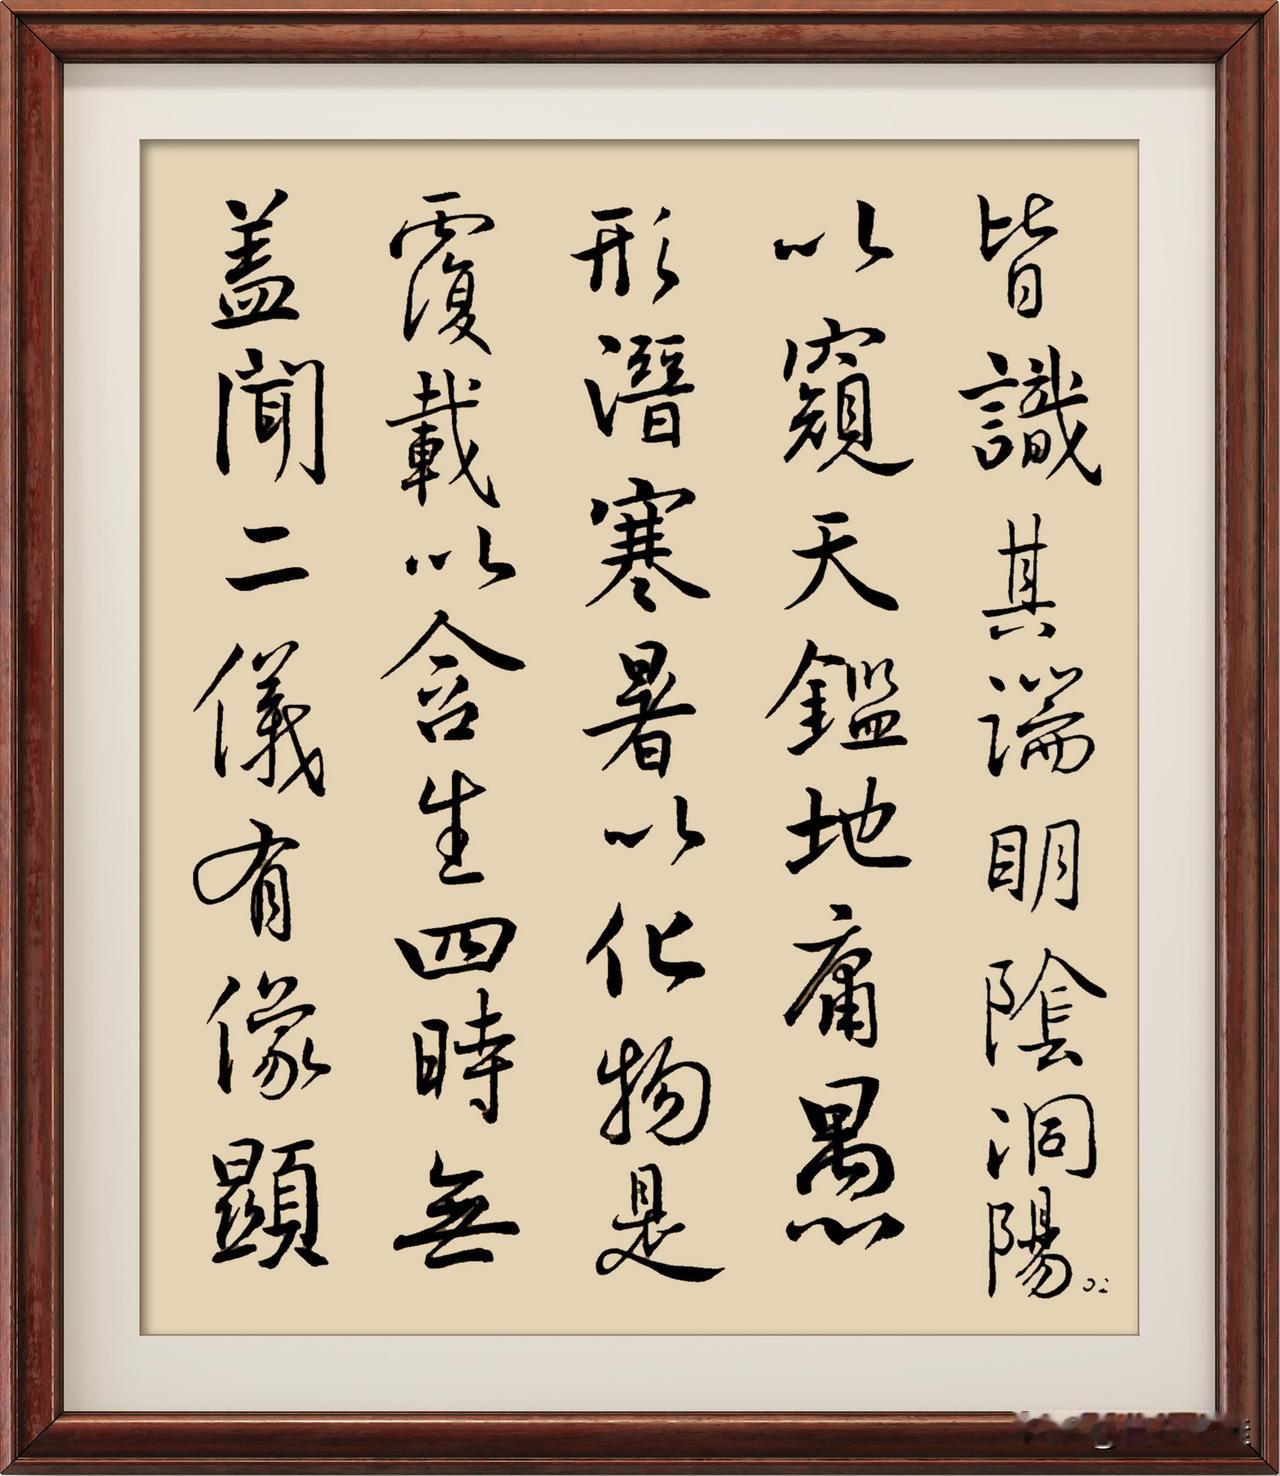 盖聞二儀有像顯
覆載以含生四時無
形潛寒暑以化物是
以窺天鑑地庸愚
皆識其端明陰洞陽